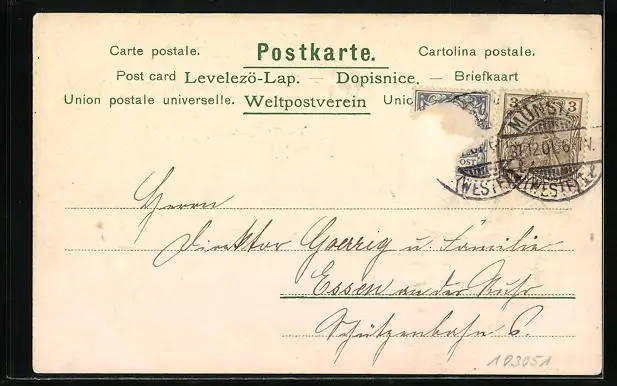 Carte postale. Postkarte. Cartolina postale.
Post card Levelezö-Lap. — Dopisnice. — Briefkaart
Union postale universelle. Weltpostverein Unio
3 3
MÜNST
31.12.0 6-7N.
(WESTF.) (WESTF.)
Herrn
Direktor Goerrig u. Familie
Essen an der Ruhr
Schützenbahn 6.
103051